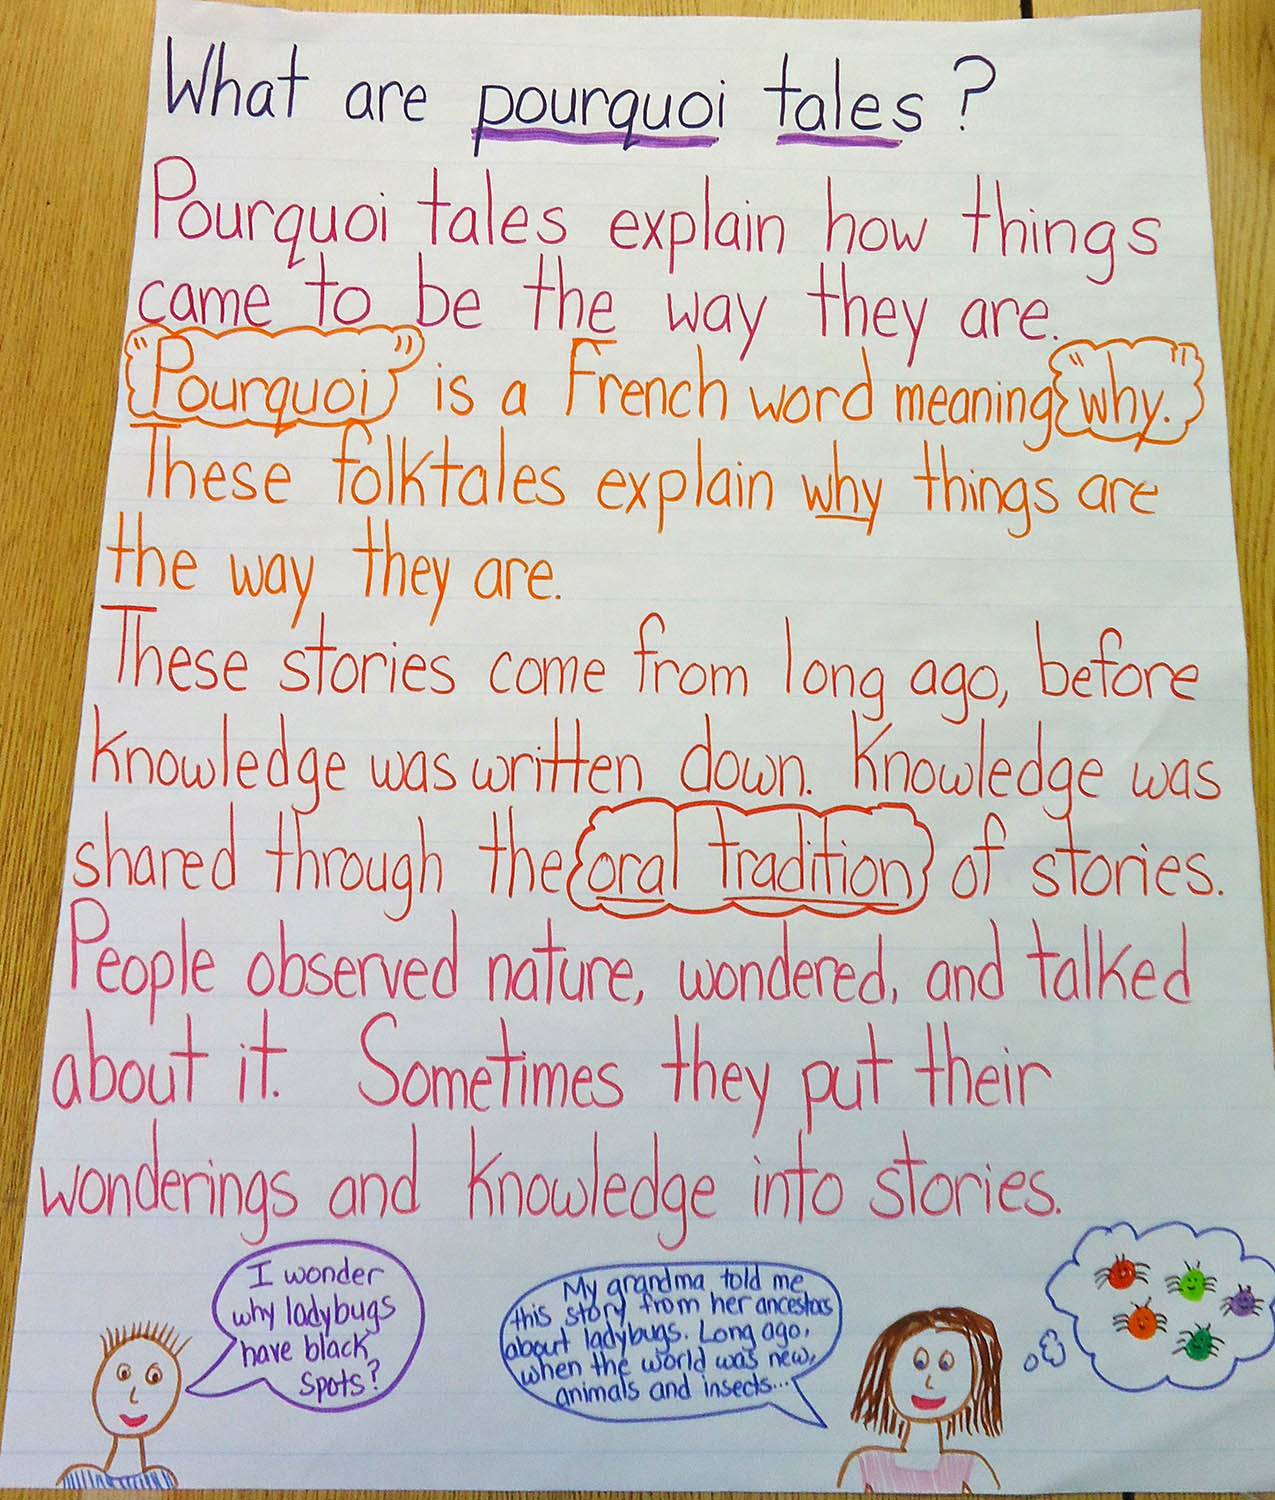 What are pourquoi tales?
Pourquoi tales explain how things
came to be the way they are.
"Pourquoi" is a French word meaning "why."
These folktales explain why things are
the way they are.
These stories come from long ago, before
knowledge was written down. Knowledge was
shared through the oral tradition of stories.
People observed nature, wondered, and talked
about it. Sometimes they put their
wonderings and knowledge into stories.
I wonder
why ladybugs
have black
spots?
My grandma told me
this story from her ancestors
about ladybugs. Long ago,
when the world was new,
animals and insects...